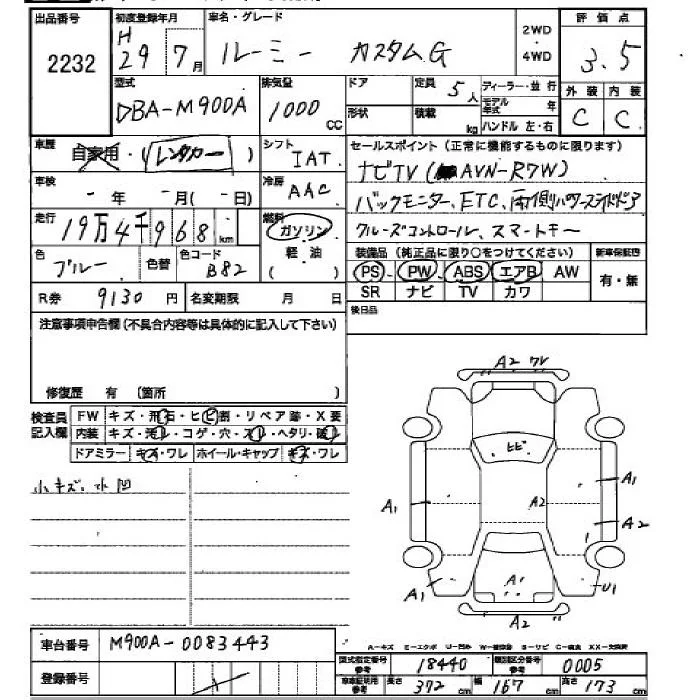 出品番号 初度登録年月 車名・グレード 2WD・4WD 評価点
2232 H29 7月 ルーミー カスタムG 3.5
型式 排気量 ドア 定員 5人 ディーラー・並行 外装 内装
DBA-M900A 1000cc 形状 積載 kg モデル年式 年 ハンドル 左・右 C C
車歴 自家用・(レンタカー) シフト IAT セールスポイント (正常に機能するものに限ります)
車検 - 年 - 月(- 日) 冷房 AAC ナビTV (AVN-R7W)
走行 19万4千968km 燃料 ガソリン バックモニター、ETC、両側パワースライドドア
軽油 クルーズコントロール、スマートキー
色 ブルー 色替 色コード B82 ( ) 装備品 (純正品に限り○をつけてください) 新車保証書
PS PW ABS エアB AW 有・無
R券 9130円 名変期限 月 日 SR ナビ TV カワ
注意事項申告欄 (不具合内容等は具体的に記入して下さい) 後日品
修復歴 有 (箇所 )
検査員記入欄 FW キズ・飛石・ヒビ割・リペア跡・X要
内装 キズ・汚レ・コゲ・穴・スレ・ヘタリ・破レ
ドアミラー キズ・ワレ ホイール・キャップ キズ・ワレ
小キズ、小凹
A2 ワレ
ヒビ
A1 A2 A1
A2
A1 A1 U1
A2
車台番号 M900A-0083443
A-キズ E-エクボ U-凹み
登録番号
型式指定番号 参考 18440 類別区分番号 参考 0005
長さ 372cm 幅 167cm 高さ 173cm